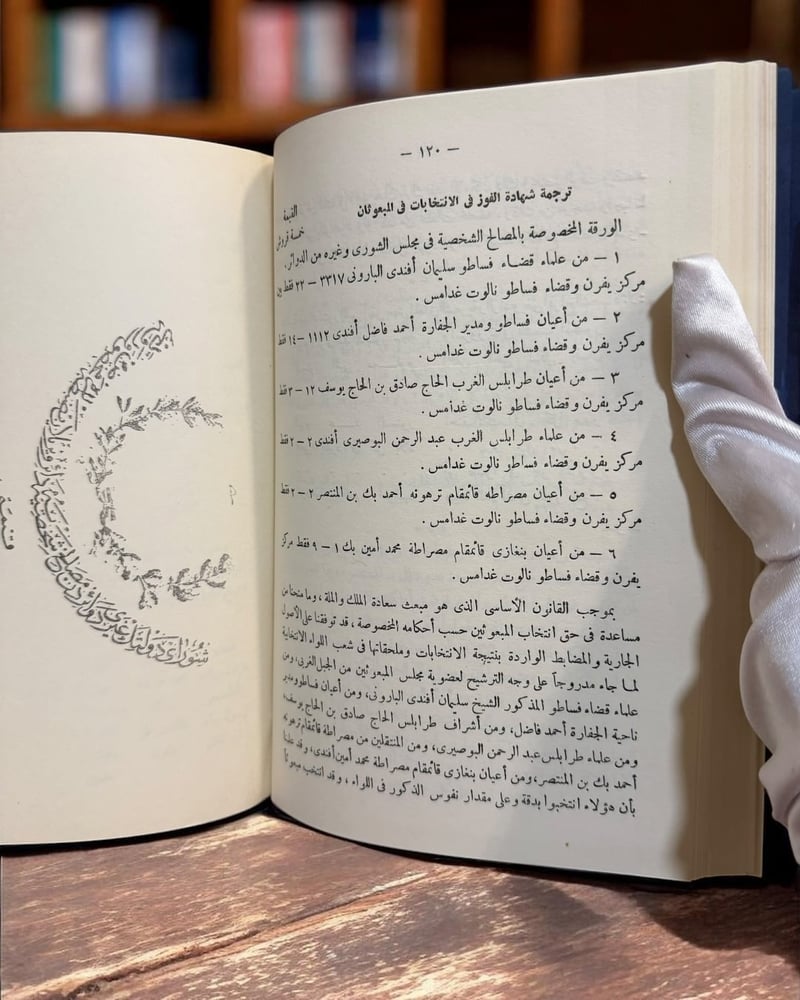 — ١٢٠ —
ترجمة شهادة الفوز فى الانتخابات فى المبعوثان
القيمة
خمسة قروش
الورقة المخصوصة بالمصالح الشخصية فى مجلس الشورى وغيره من الدوائر.
١ — من علماء قضاء فساطو سليمان أفندى البارونى ٣٣١٧ — ٢٢ فقط بين
مركز يفرن وقضاء فساطو نالوت غدامس .
٢ — من أعيان فساطو ومدير الجفارة أحمد فاضل أفندى ١١١٢ — ١٤ فقط
مركز يفرن وقضاء فساطو نالوت غدامس .
٣ — من أعيان طرابلس الغرب الحاج صادق بن الحاج يوسف ١٢ — ٣ فقط
مركز يفرن وقضاء فساطو نالوت غدامس .
٤ — من علماء طرابلس الغرب عبد الرحمن البوصيرى أفندى ٢ — ٢ فقط
مركز يفرن وقضاء فساطو نالوت غدامس .
٥ — من أعيان مصراطه قائمقام ترهونه أحمد بك بن المنتصر ٢ — ٢ فقط
مركز يفرن وقضاء فساطو نالوت غدامس .
٦ — من أعيان بنغازى قائمقام مصراطة محمد أمين بك ١ — ٩ فقط مركز
يفرن وقضاء فساطو نالوت غدامس .
بموجب القانون الأساسى الذى هو مبعث سعادة الملك والملة ، وما منحنا من
مساعدة فى حق انتخاب المبعوثين حسب أحكامه المخصوصة ، قد توفقنا على الأصول
الجارية والمضابط الواردة بنتيجة الانتخابات وملحقاتها فى شعب اللواء الانتخابية
لما جاء مدروجاً على وجه الترشيح لعضوية مجلس المبعوثين من الجبل الغربى ، ومن
علماء قضاء فساطو المذكور الشيخ سليمان أفندى البارونى ، ومن أعيان فساطو ومدير
ناحية الجفارة أحمد فاضل ، ومن أشراف طرابلس الحاج صادق بن الحاج يوسف ،
ومن علماء طرابلس عبد الرحمن البوصيرى ، ومن المنتقلين من مصراطة قائمقام ترهونه
أحمد بك بن المنتصر ، ومن أعيان بنغازى قائمقام مصراطة محمد أمين أفندى ، وقد علمنا
بأن هؤلاء انتخبوا بدقة وعلى مقدار نفوس الذكور فى اللواء ، وقد انتخب مبعوثاً